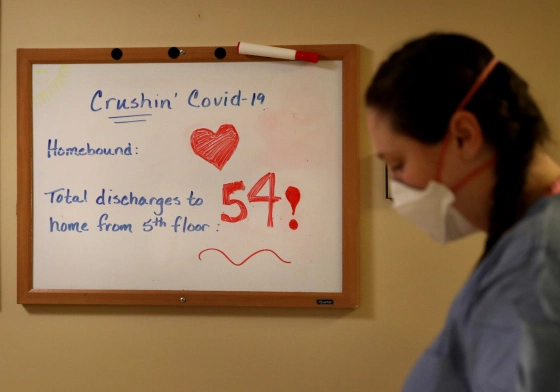 Crushin' Covid-19
Homebound:
Total discharges to
home from 5th floor: 54!